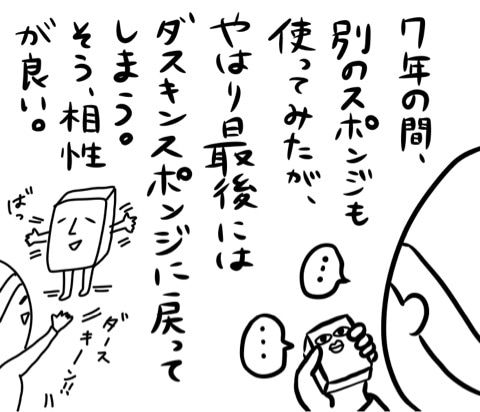 7年の間、
別のスポンジも
使ってみたが、
やはり最後には
ダスキンスポンジに戻って
しまう。
そう、相性
が良い。
ばっ
ダース
キーン!!
…
…